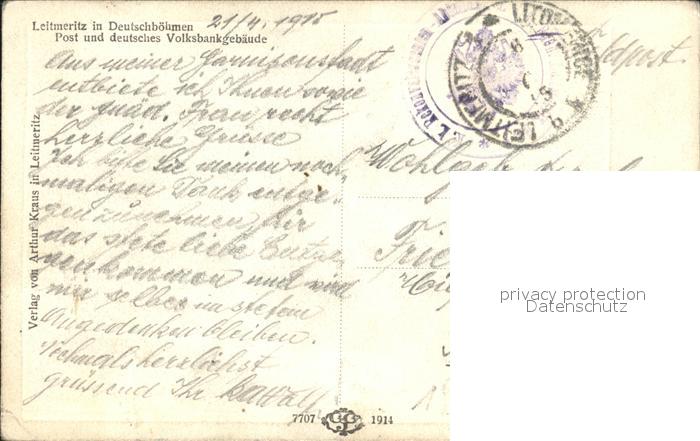 Leitmeritz in Deutschböhmen
Post und deutsches Volksbankgebäude
21/4. 1915
Feldpost.
Aus meiner Garnisonstadt
entbiete ich Ihnen sowie
der gnäd. Frau recht
herzliche Grüsse
Ich bitte Sie meinen noch-
maligen Dank entge-
genzunehmen für
das stete liebe Entge-
genkommen und wird
mir selbes in stetem
Angedenken bleiben.
Nochmals herzlichst
grüssend Ihr
Wohlgeb.
Verlag von Arthur Kraus in Leitmeritz
LEITMERITZ
7707 1914
privacy protection
Datenschutz